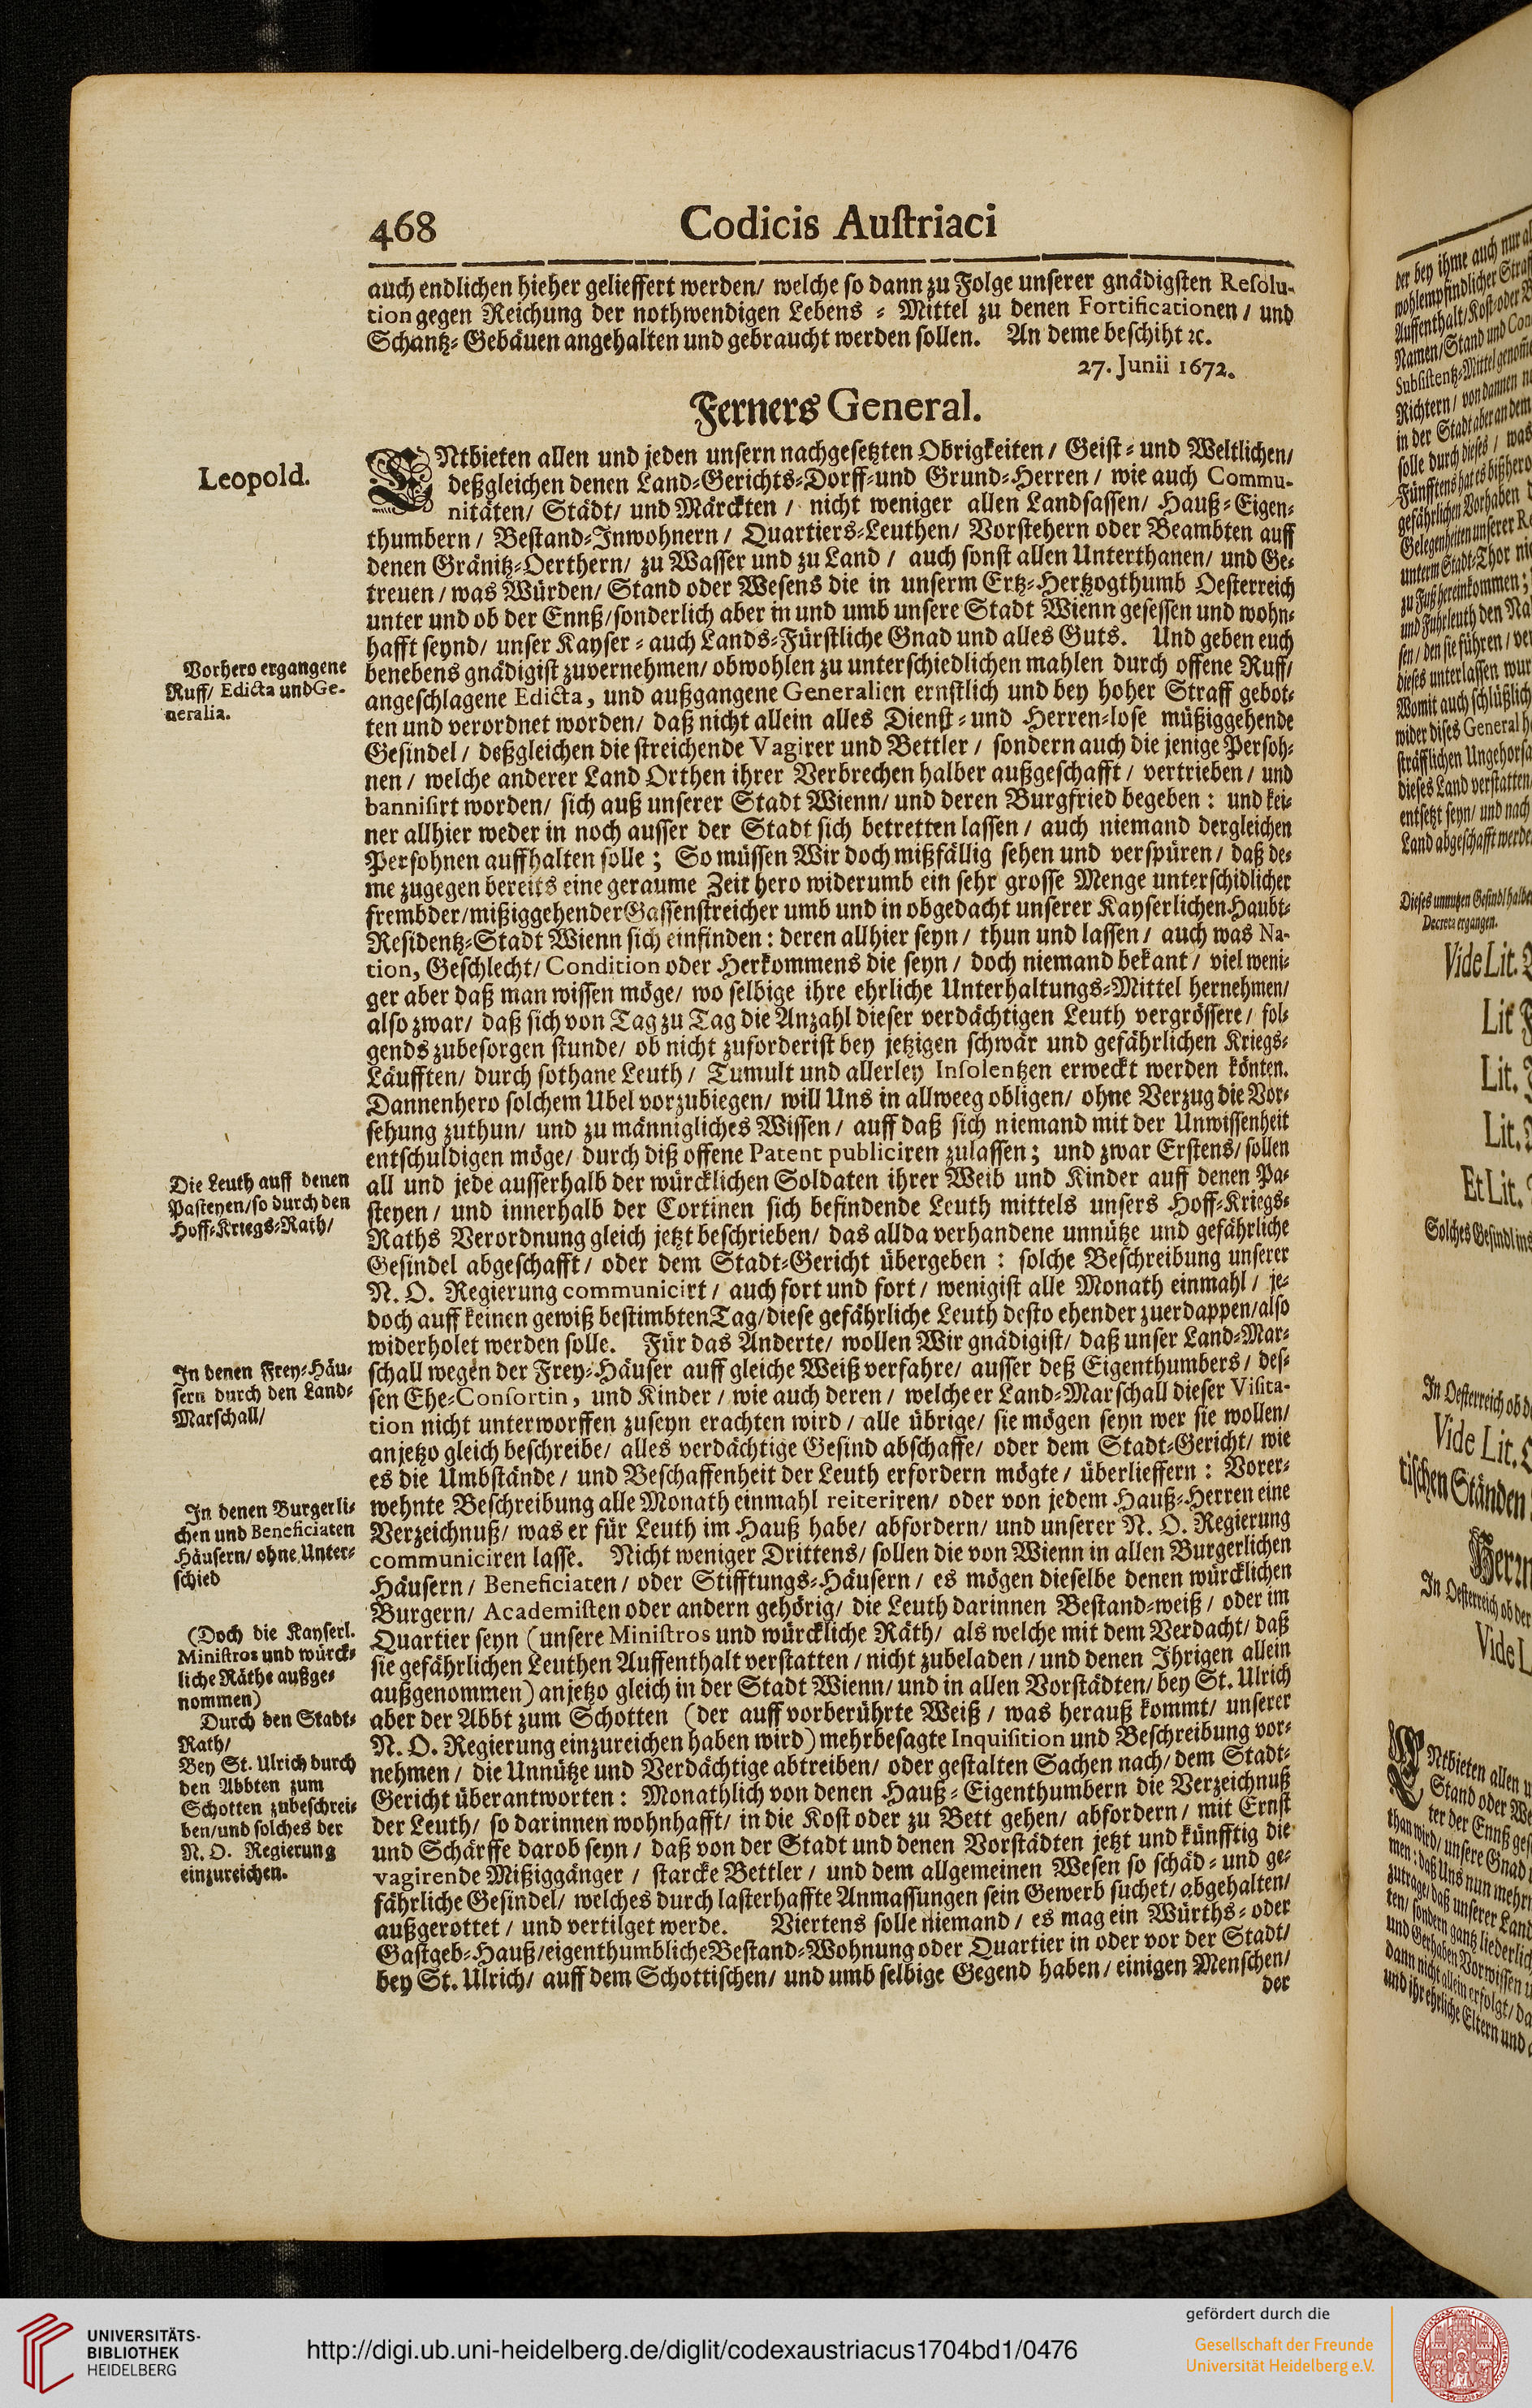 468 Codicis Auſtriaci
auch endlichen hieher gelieffert werden/ welche ſo dann zu Folge unſerer gnädigſten Reſolu-
tion gegen Reichung der nothwendigen Lebens - Mittel zu denen Fortificationen / und
Schantz-Gebäuen angehalten und gebraucht werden ſollen. An deme beſchiht ꝛc.
27. Junii 1672.
Ferners General.
Leopold.
ENtbieten allen und jeden unſern nachgeſetzten Obrigkeiten / Geiſt - und Weltlichen/
deßgleichen denen Land-Gerichts-Dorff-und Grund-Herren / wie auch Commu-
nitäten/ Städt/ und Märckten / nicht weniger allen Landſaſſen/ Hauß-Eigen-
thumbern / Beſtand-Inwohnern / Quartiers-Leuthen/ Vorſtehern oder Beambten auff
denen Gränitz-Oerthern/ zu Waſſer und zu Land / auch ſonſt allen Unterthanen/ und Ge-
treuen / was Würden/ Stand oder Weſens die in unſerm Ertz-Hertzogthumb Oeſterreich
unter und ob der Ennß/ſonderlich aber in und umb unſere Stadt Wienn geſeſſen und wohn-
hafft ſeynd/ unſer Kayſer - auch Lands-Fürſtliche Gnad und alles Guts. Und geben euch
Vorhero ergangene
Ruff/ Edicta und Ge-
neralia.
benebens gnädigiſt zuvernehmen/ obwohlen zu unterſchiedlichen mahlen durch offene Ruff/
angeſchlagene Edicta, und außgangene Generalien ernſtlich und bey hoher Straff gebot-
ten und verordnet worden/ daß nicht allein alles Dienſt - und Herren-loſe müßiggehende
Geſindel / deßgleichen die ſtreichende Vagirer und Bettler / ſondern auch die jenige Perſoh-
nen / welche anderer Land Orthen ihrer Verbrechen halber außgeſchafft / vertrieben / und
banniſirt worden/ ſich auß unſerer Stadt Wienn/ und deren Burgfried begeben : und kei-
ner allhier weder in noch auſſer der Stadt ſich betretten laſſen / auch niemand dergleichen
Perſohnen auffhalten ſolle ; So müſſen Wir doch mißfällig ſehen und verſpüren / daß de-
me zugegen bereits eine geraume Zeit hero widerumb ein ſehr groſſe Menge unterſchidlicher
frembder/mißiggehender Gaſſenſtreicher umb und in obgedacht unſerer Kayſerlichen Haubt-
Reſidentz-Stadt Wienn ſich einfinden : deren allhier ſeyn / thun und laſſen / auch was Na-
tion, Geſchlecht/ Condition oder Herkommens die ſeyn / doch niemand bekant / viel weni-
ger aber daß man wiſſen möge/ wo ſelbige ihre ehrliche Unterhaltungs-Mittel hernehmen/
alſo zwar/ daß ſich von Tag zu Tag die Anzahl dieſer verdächtigen Leuth vergröſſere / fol-
gends zubeſorgen ſtunde/ ob nicht zuforderiſt bey jetzigen ſchwär und gefährlichen Kriegs-
Läufften/ durch ſothane Leuth / Tumult und allerley Inſolentzen erweckt werden könten.
Dannenhero ſolchem Ubel vorzubiegen/ will Uns in allweeg obligen/ ohne Verzug die Vor-
ſehung zuthun/ und zu männigliches Wiſſen / auff daß ſich niemand mit der Unwiſſenheit
entſchuldigen möge/ durch diß offene Patent publiciren zulaſſen ; und zwar Erſtens/ ſollen
Die Leuth auff denen
Paſteyen/ſo durch den
Hoff-Kriegs-Rath/
all und jede auſſerhalb der würcklichen Soldaten ihrer Weib und Kinder auff denen Pa-
ſteyen / und innerhalb der Cortinen ſich befindende Leuth mittels unſers Hoff-Kriegs-
Raths Verordnung gleich jetzt beſchrieben/ das allda verhandene unnütze und gefährliche
Geſindel abgeſchafft / oder dem Stadt-Gericht übergeben : ſolche Beſchreibung unſerer
N. O. Regierung communicirt / auch fort und fort / wenigiſt alle Monath einmahl / je-
doch auff keinen gewiß beſtimbten Tag/dieſe gefährliche Leuth deſto ehender zuerdappen/alſo
widerholet werden ſolle. Für das Anderte/ wollen Wir gnädigiſt/ daß unſer Land-Mar-
In denen Frey-Häu-
ſern durch den Land-
Marſchall/
ſchall wegen der Frey-Häuſer auff gleiche Weiß verfahre/ auſſer deß Eigenthumbers / deſ-
ſen Ehe-Conſortin, und Kinder / wie auch deren / welche er Land-Marſchall dieſer Viſita-
tion nicht unterworffen zuſeyn erachten wird / alle übrige/ ſie mögen ſeyn wer ſie wollen/
anjetzo gleich beſchreibe/ alles verdächtige Geſind abſchaffe/ oder dem Stadt-Gericht/ wie
es die Umbſtände / und Beſchaffenheit der Leuth erfordern mögte / überlieffern : Vorer-
In denen Burgerli-
chen und Beneficiaten
Häuſern/ ohne Unter-
ſchied
wehnte Beſchreibung alle Monath einmahl reiteriren/ oder von jedem Hauß-Herren eine
Verzeichnuß/ was er für Leuth im Hauß habe/ abfordern/ und unſerer N. O. Regierung
communiciren laſſe. Nicht weniger Drittens/ ſollen die von Wienn in allen Burgerlichen
Häuſern / Beneficiaten / oder Stifftungs-Häuſern / es mögen dieſelbe denen würcklichen
Burgern/ Academiſten oder andern gehörig/ die Leuth darinnen Beſtand-weiß / oder im
(Doch die Kayſerl.
Miniſtros und würck-
liche Räthe außge-
nommen)
Quartier ſeyn (unſere Miniſtros und würckliche Räth/ als welche mit dem Verdacht/ daß
ſie gefährlichen Leuthen Auffenthalt verſtatten / nicht zubeladen / und denen Ihrigen allein
außgenommen) anjetzo gleich in der Stadt Wienn/ und in allen Vorſtädten/ bey St. Ulrich
Durch den Stadt-
Rath/
Bey St. Ulrich durch
den Abbten zum
Schotten zubeſchrei-
ben/und ſolches der
N. O. Regierung
einzureichen.
aber der Abbt zum Schotten (der auff vorberührte Weiß / was herauß kommt/ unſerer
N. O. Regierung einzureichen haben wird) mehrbeſagte Inquiſition und Beſchreibung vor-
nehmen / die Unnütze und Verdächtige abtreiben/ oder geſtalten Sachen nach/ dem Stadt-
Gericht überantworten : Monathlich von denen Hauß-Eigenthumbern die Verzeichnuß
der Leuth/ ſo darinnen wohnhafft/ in die Koſt oder zu Bett gehen/ abfordern / mit Ernſt
und Schärffe darob ſeyn / daß von der Stadt und denen Vorſtädten jetzt und künfftig die
vagirende Mißiggänger / ſtarcke Bettler / und dem allgemeinen Weſen ſo ſchäd - und ge-
fährliche Geſindel/ welches durch laſterhaffte Anmaſſungen ſein Gewerb ſuchet/ abgehalten/
außgerottet / und vertilget werde. Viertens ſolle niemand / es mag ein Würths - oder
Gaſtgeb-Hauß/eigenthumbliche Beſtand-Wohnung oder Quartier in oder vor der Stadt/
bey St. Ulrich/ auff dem Schottiſchen/ und umb ſelbige Gegend haben / einigen Menſchen/
der
der bey ihme auch nur
wohlempfindlicher
Auffenthalt/Koſt/oder
Namen/Stand und
Subſiſtentz-Mittel
Richtern / von dannen
in der Stadt aber an dem
ſolle durch dieſes / was
Fünfftens hat es bißhero
gefährlichen Vorhaben
Gelegenheiten unſerer
unterm Stadt-Thor
zu Fuß hereinkommen;
und Fuhrleuth den
ſen / den ſie führen /
dieſes unterlaſſen
Womit auch
wider diſes General
ſträfflichen
dieſes Land verſtatten
entſetzt ſeyn/ und nach
Land abgeſchafft
Dieſes unnutzen Geſindl
Decreta ergangen.
Vide Lit.
Lit
Lit.
Lit.
Et Lit.
Solches Geſindl
In Oeſterreich ob
Vide Lit.
tiſchen Ständen
In Oeſterreich ob der
Vide
ENtbieten allen
Stand oder
ter der Ennß
than wird/ unſere Gnad
men : daß Uns nun
zutrage/ daß unſerer
ten/ ſondern gantz
und Gerhaben Vorwiſſen
dann nicht allein erfolgt/
und ihr ehrliche Eltern und
UNIVERSITÄTS-
BIBLIOTHEK
HEIDELBERG
http://digi.ub.uni-heidelberg.de/diglit/codexaustriacus1704bd1/0476
gefördert durch die
Gesellschaft der Freunde
Universität Heidelberg e.V.